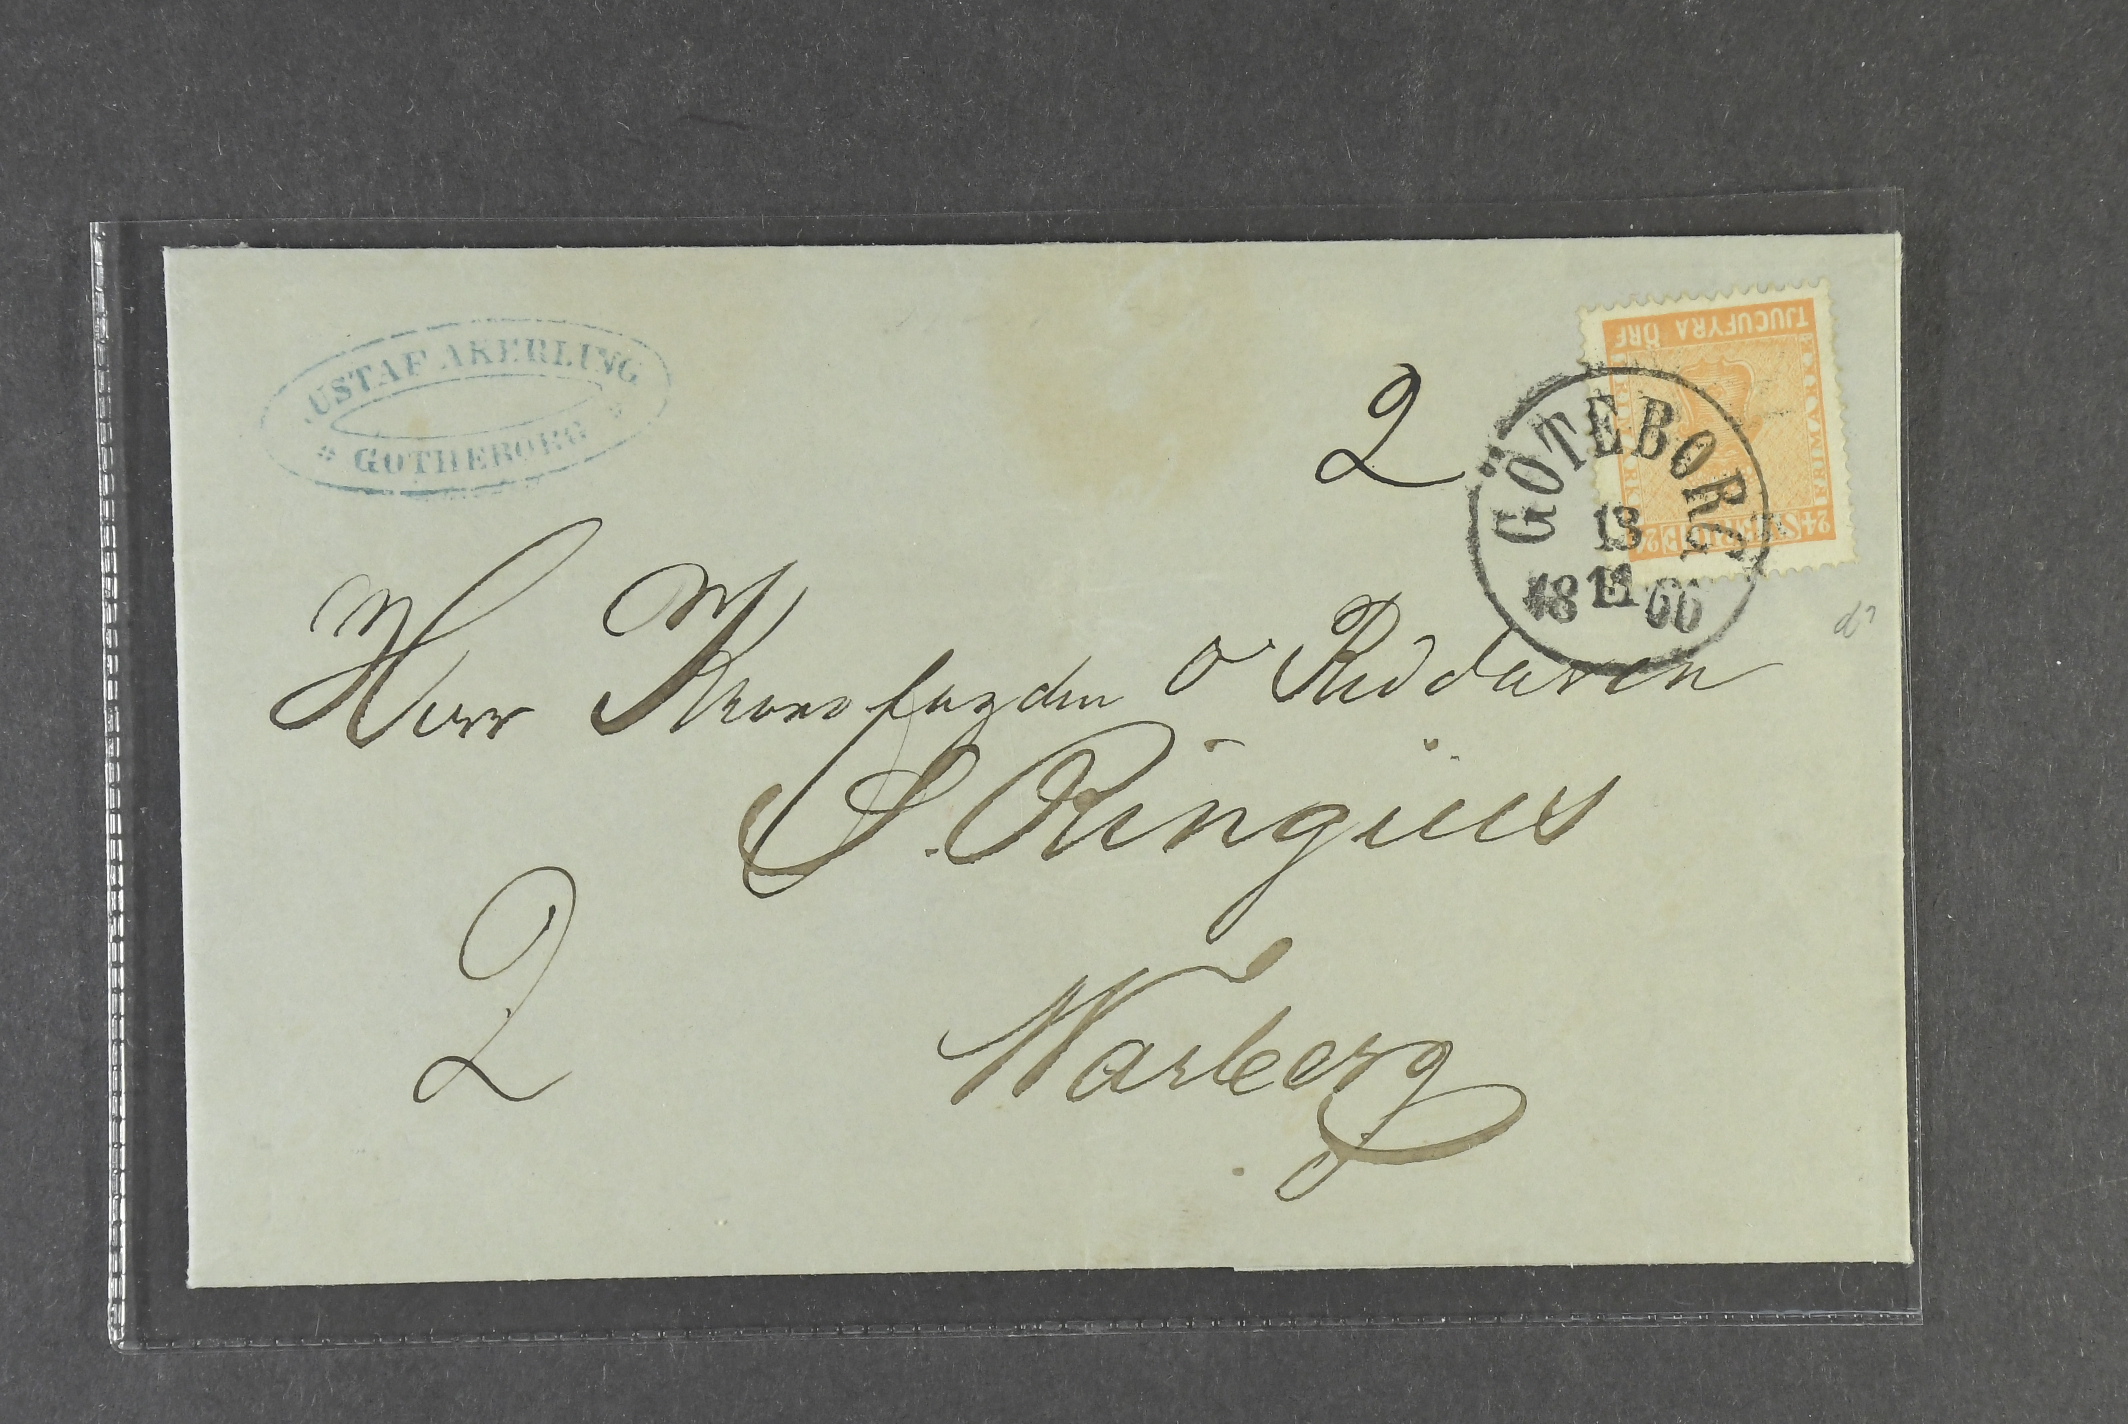 USTAF AKERLING
GOTHEBORG
2
TJUGUFYRA ÖRE
FRIMÄRKE
24 SVERIGE 24
GÖTEBORG
13
11
18 66
Herr Kronofogden o Riddaren
S. Ringius
2
Warberg